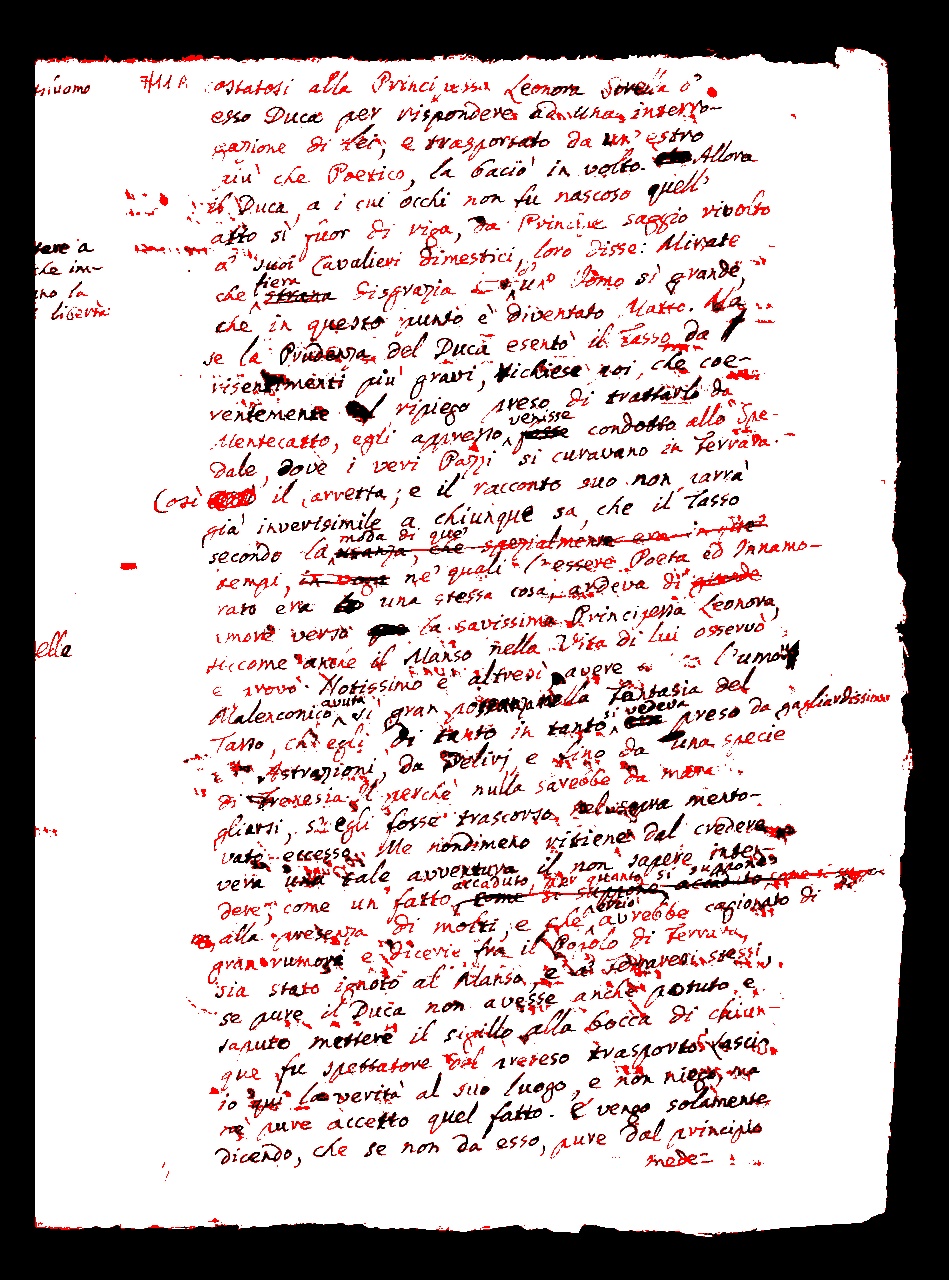 7/11 A
costatosi alla Principessa Leonora Sorella d'
esso Duca per rispondere ad una interro-
gazione di lei, e trasportato da un' estro
più che Poetico, la baciò in volto. Allora
il Duca, a i cui occhi non fu nascoso quell'
atto sì fuor di riga, da Principe saggio rivolto
a' suoi Cavalieri dimestici, loro disse: Mirate
che fiera strana disgrazia d'un Uomo sì grande,
che in questo punto è diventato Matto. Ma
se la Prudenza del Duca esentò il Tasso da
risentimenti più gravi, richiese poi, che coe-
rentemente al ripiego preso di trattarlo da
Mentecatto, egli appresso venisse fosse condotto allo Spe-
dale, dove i veri Pazzi si curavano in Ferrara.
Così il Carretta; e il racconto suo non parrà
già inverisimile a chiunque sa, che il Tasso
secondo la moda di que' usanza, che spezialmente era in que'
tempi, in voga ne' quali l'essere Poeta ed Innamo-
rato era una stessa cosa, ardeva di grande
amore verso la savissima Principessa Leonora,
siccome anche il Manso nella Vita di lui osservò,
e provò. Notissimo è altresì avere l'umor
Malenconico avuta sì gran possanza nella Fantasia del
Tasso, ch'egli di tanto in tanto si vedeva preso da gagliardissime
Astrazioni, da Delirj, e fino da una specie
di Frenesia. Il perchè nulla sarebbe da mara-
gliarsi, s'egli fosse trascorso nel sopra mento-
vato eccesso. Me nondimeno ritiene dal credere
vera una tale avventura il non sapere inten-
dere, come un fatto, accaduto, per quanto si suppone, come si suppone, accaduto
alla presenza di molti, e che perciò avrebbe cagionato di
gran rumori e dicerie fra il Popolo di Ferrara,
sia stato ignoto al Manso, e ai stessi,
se pure il Duca non avesse anche potuto e
saputo mettere il sigillo alla bocca di chiun-
que fu spettatore del preteso trasporto. Lascio
io qui la verità al suo luogo, e non niego, ma
nè pure accetto quel fatto. E vengo solamente
dicendo, che se non da esso, pure dal principio
mede-
tere a
che im-
ano la
libertà